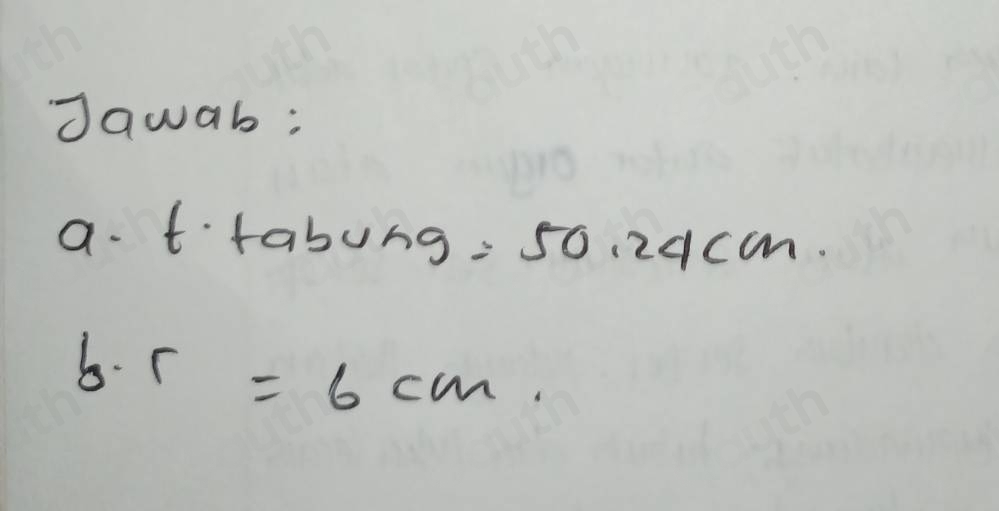 Jawab :
a. t. tabung = 50.24 cm.
b. r = 6 cm.